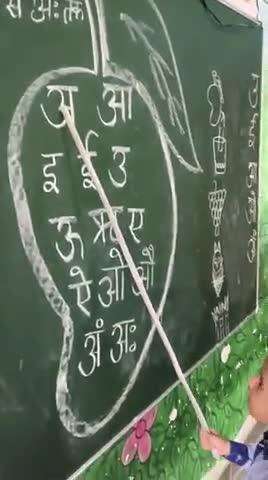 से अः तक
अ आ
इ ई उ
ऊ ऋ ए
ऐ ओ औ
अं अः